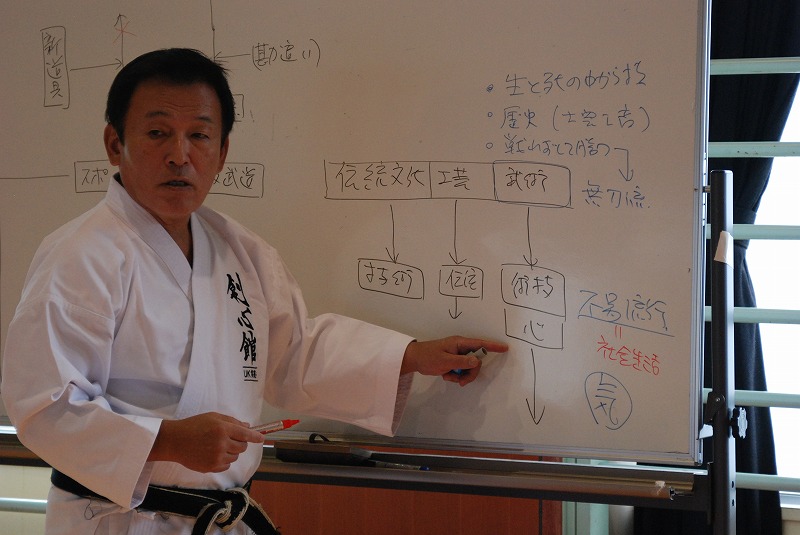 新道具
米
(勘違い)
スポ
武道
・生と死のわかう技
・歴史
・戦わずして勝つ
無刀流
伝統文化 工芸 武術
技術 伝信 術技
心
不易流行
〃
社会生活
気
剣心館
UK